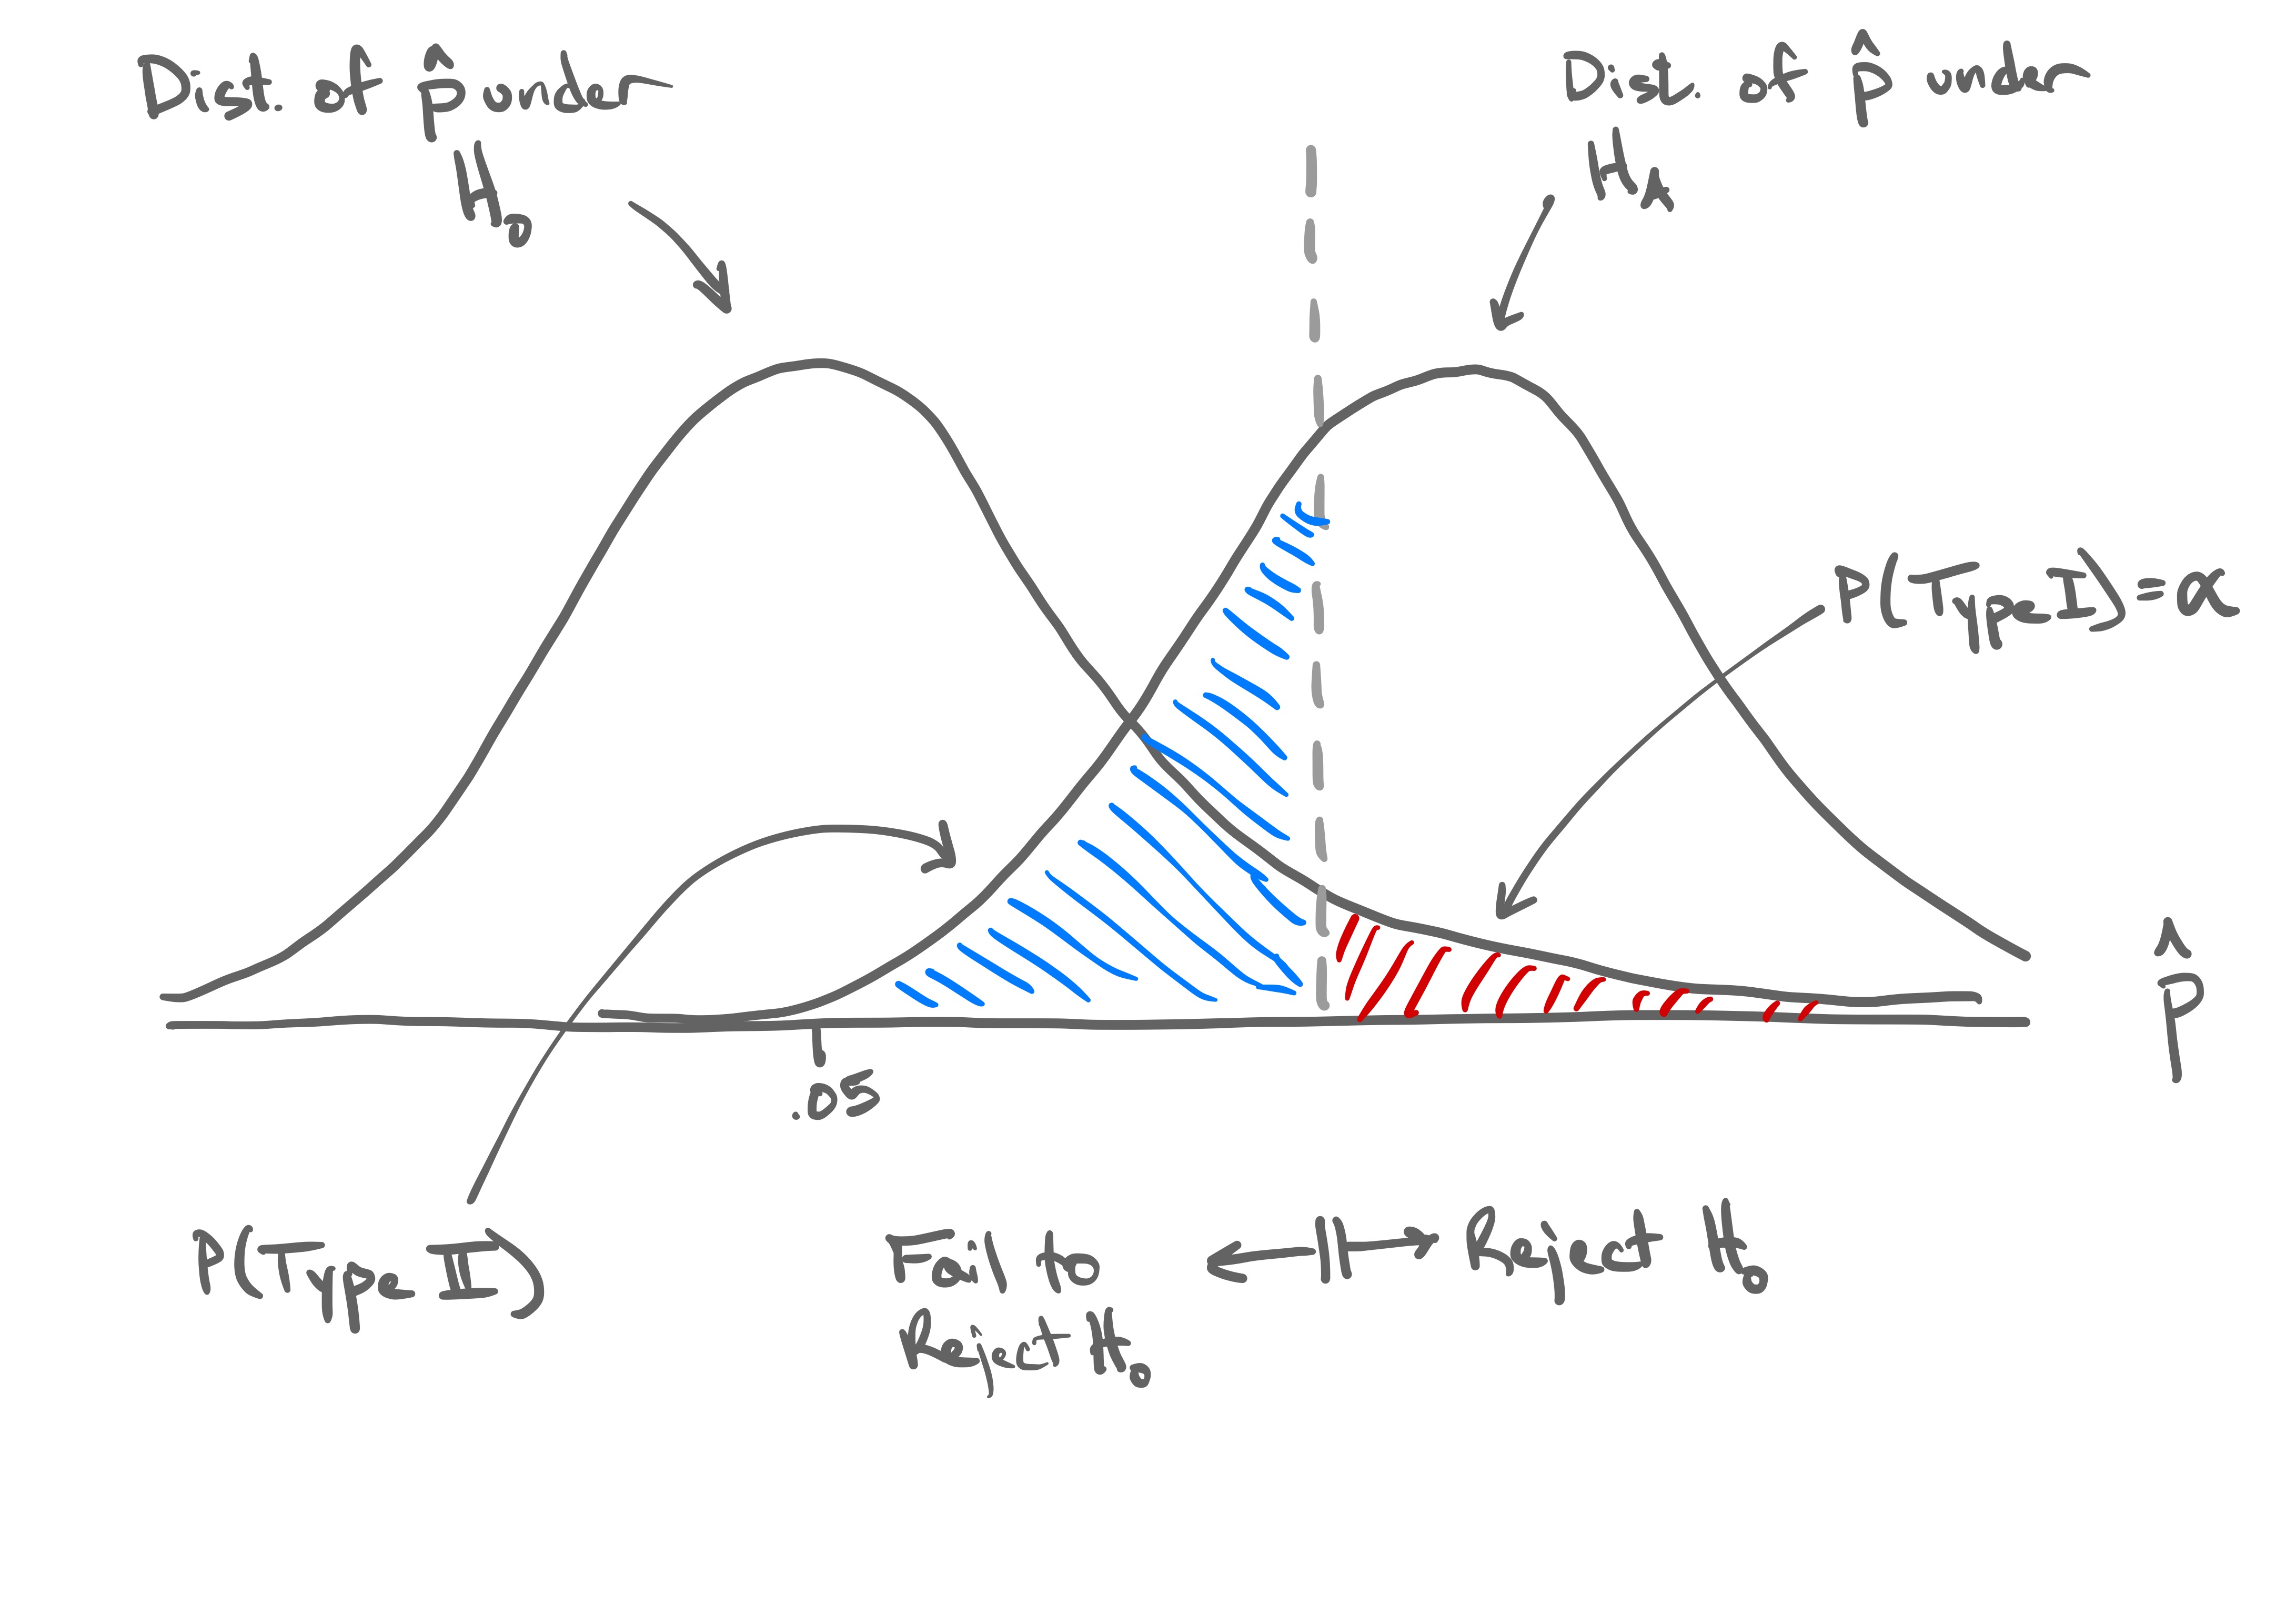 Dist. of p̂ under
H₀
Dist. of p̂ under
H_A
P(Type I) = α
p̂
.05
P(Type II)
Fail to
Reject H₀
Reject H₀